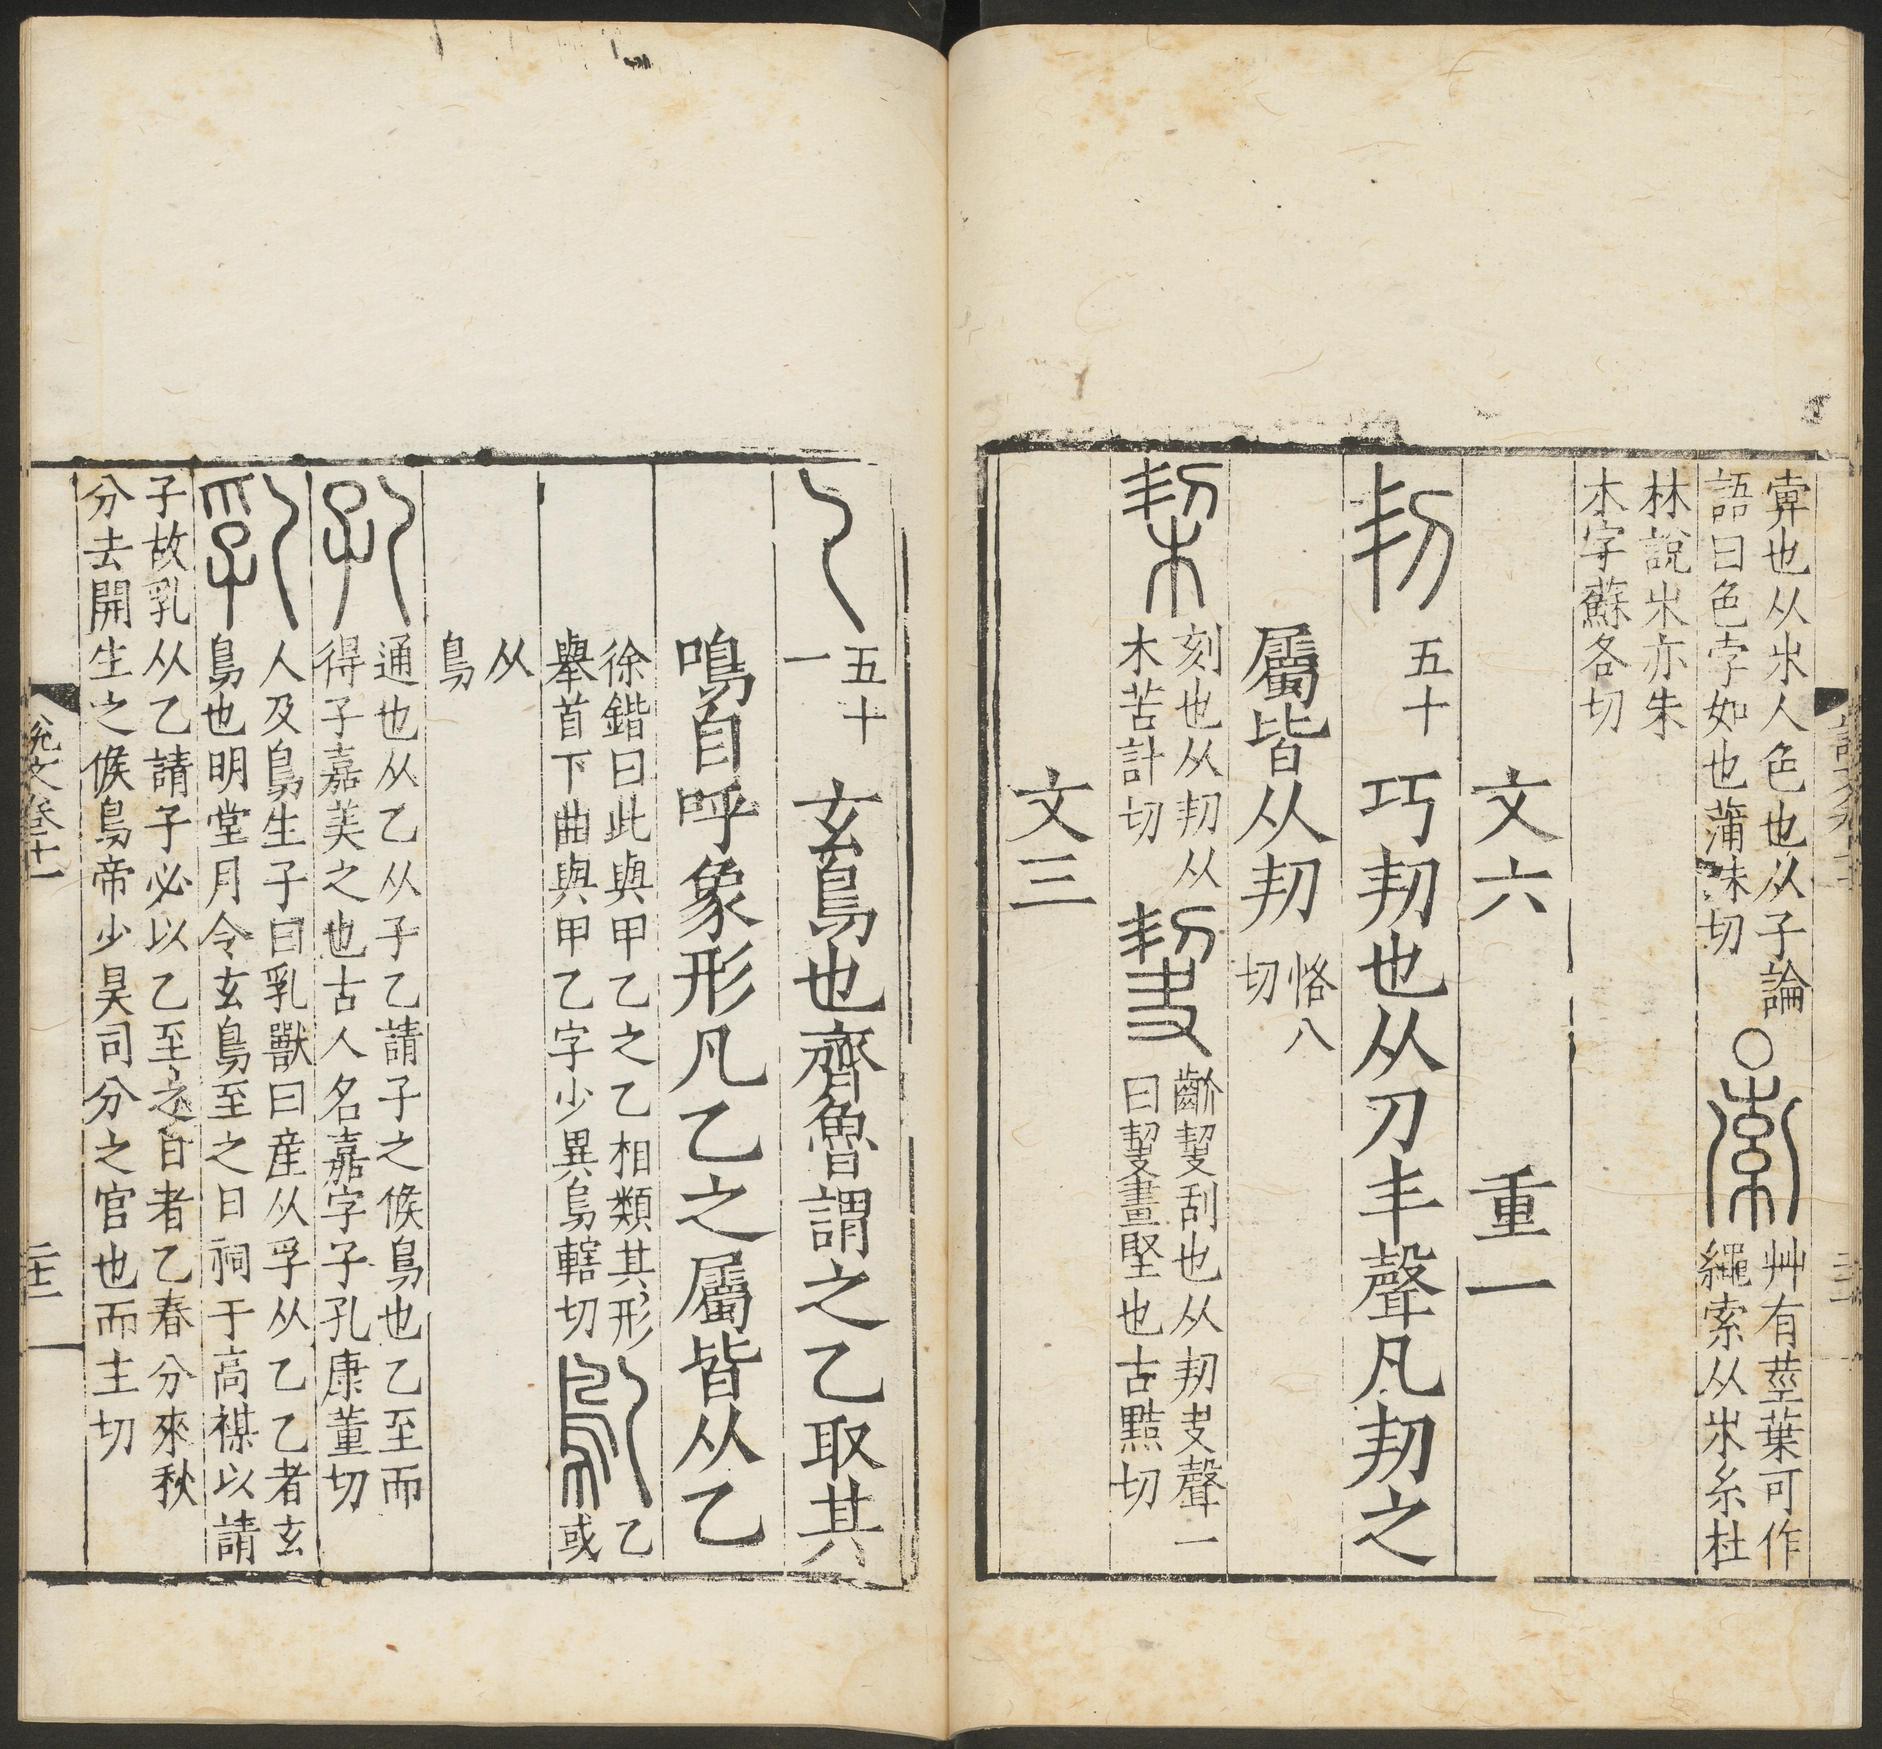 𡴞也从𣎵人色也从子論
語曰色孛如也蒲妹切
○索
艸有莖葉可作
繩索从𣎵糸杜
林說𣎵亦朱
木字蘇各切
文六 重一
㓞 五十 巧㓞也从刀丯聲凡㓞之
屬皆从㓞 恪八
切
栔 刻也从㓞从
木苦計切
𡙇 齘𡙇刮也从㓞夬聲一
曰𡙇畫堅也古黠切
文三
乙 五十
一
玄鳥也齊魯謂之乙取其
鳴自呼象形凡乙之屬皆从乙
徐鍇曰此與甲乙之乙相類其形
舉首下曲與甲乙字少異烏轄切
鳦 乙
或
从
鳥
孔 通也从乙从子乙請子之候鳥也乙至而
得子嘉美之也古人名嘉字子孔康董切
乳 人及鳥生子曰乳獸曰產从孚从乙乙者玄
鳥也明堂月令玄鳥至之日祠于高禖以請
子故乳从乙請子必以乙至之日者乙春分來秋
分去開生之候鳥帝少昊司分之官也而主切